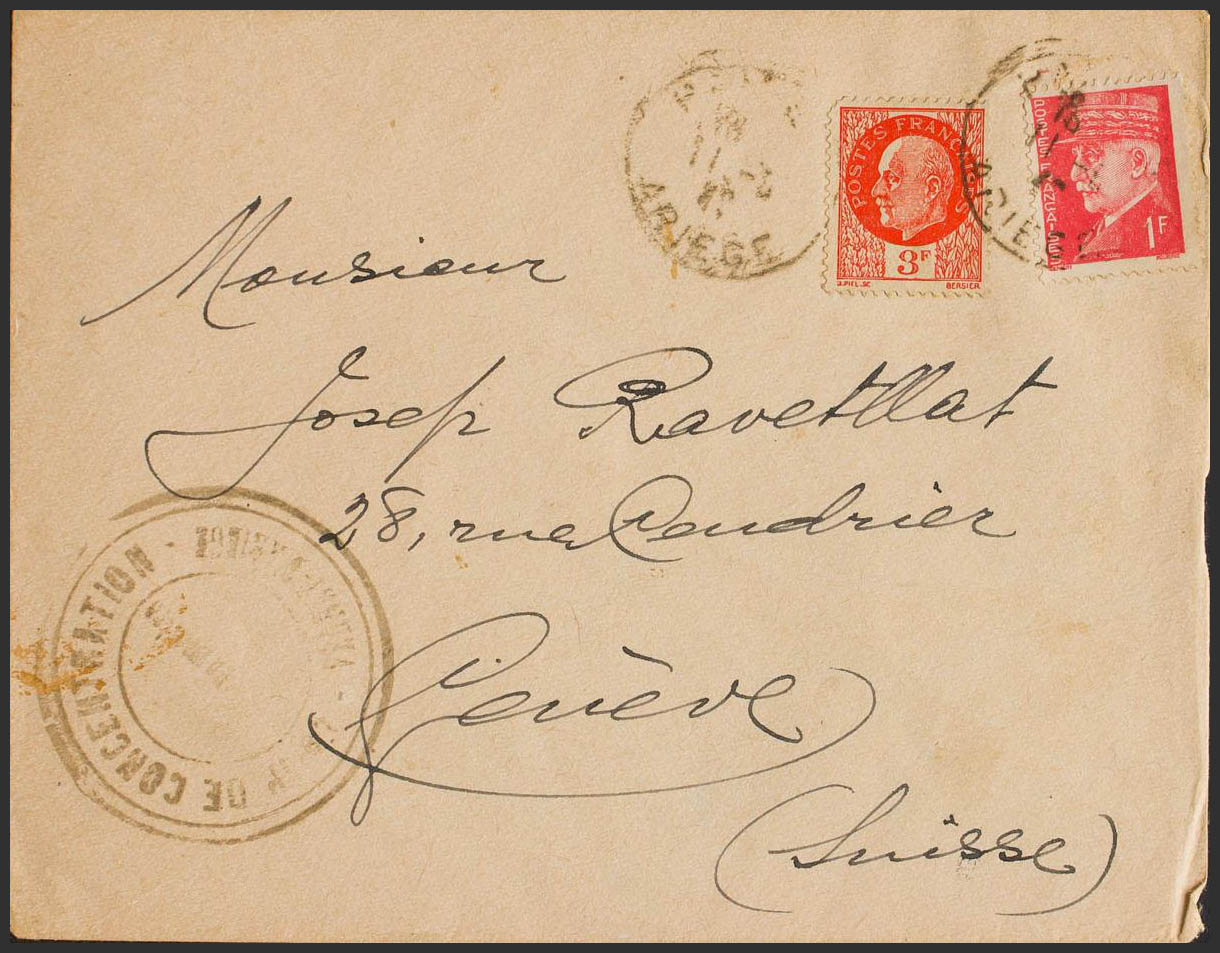 ARIEGE
POSTES FRANÇAISES
3F
J.PIEL.SC BERSIER
ARIEGE
POSTES FRANÇAISES
1F
Monsieur
Josep Ravetllat
28, rue Cendrier
Genève
(Suisse)
DE CONCENTRATION